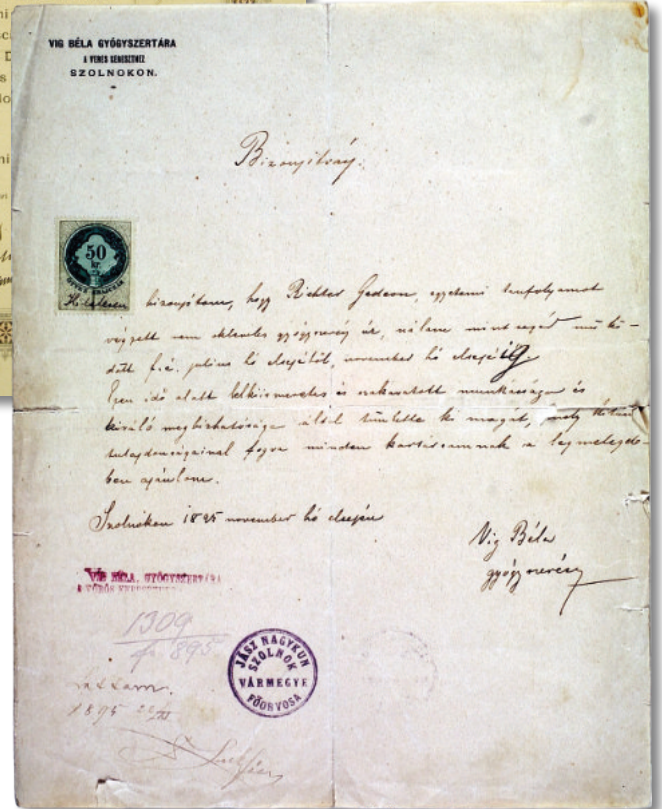 VIG BÉLA GYÓGYSZERTÁRA
A VERES KERESZTHEZ
SZOLNOKON.
Bizonyítvány.
50
kr.
Hitelesen bizonyítom, hogy Richter Gedeon, egyetemi tanfolyamot
végzett nem okleveles gyógyszerész úr, nálam mint segéd műkö-
dött f. é. julius hó elsejétől, november hó elsejéig.
Ezen idő alatt lelkiismeretes és szakavatott munkássága és
kiváló megbizhatósága által tüntette ki magát, mely
tulajdonságainál fogva minden kartársamnak a legmelegeb-
ben ajánlom.
Szolnokon 1895 november hó elsején
Vig Béla
gyógyszerész
VIG BÉLA, GYÓGYSZERTÁRA
1309
895
Láttam.
1895
JÁSZ NAGYKUN
SZOLNOK
VÁRMEGYE
FŐORVOSA